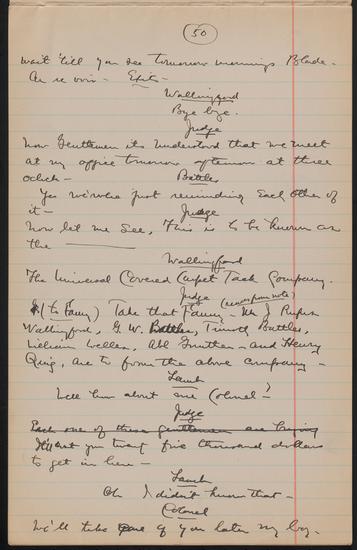 50
wait 'till you see tomorrow mornings Blade.
Au re voir - Exits -
Wallingford
Bye bye.
Judge
Now Gentlemen its understood that we meet
at my office tomorrow afternoon at three
oclock -
Battles
Yes we're just reminding each other of
it -
Judge
Now let me see, This is to be known as
the
Wallingford
The Universal Covered Carpet Tack Company.
Judge
(to Fanny) Take that Fanny - Mr J. Rufus
Wallingford, G. W. Battles, Timothy Battles,
William Welles, Abe Gunther - and Henry
Quig, are to form the above company -
Lamb
Well how about me Colonel?
Judge
Each one of these gentlemen are
you twenty five thousand dollars
to get in here -
Lamb
Oh I didn't know that -
Colonel
We'll take care of you later my boy.